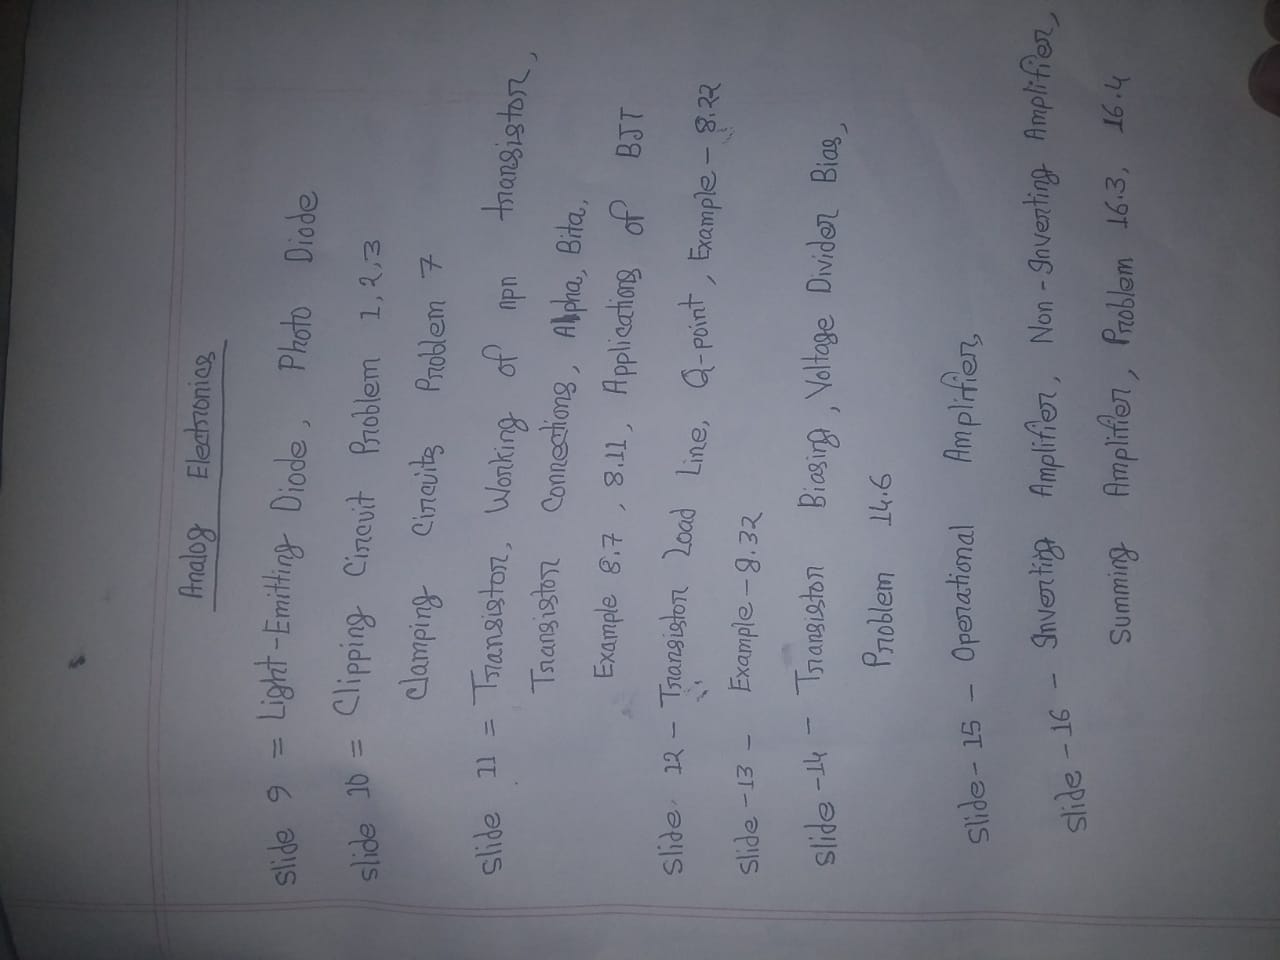 Analog Electronics
Slide 9 = Light-Emitting Diode, Photo Diode
slide 10 = Clipping Circuit Problem 1,2,3
Clamping Circuits Problem 7
Slide 11 = Transistor, Working of npn transistor,
Transistor Connections, Alpha, Bita,
Example 8.7, 8.11, Applications of BJT
Slide 12 - Transistor Load Line, Q-point, Example - 8.22
Slide -13 - Example - 8.32
Slide -14 - Transistor Biasing, Voltage Divider Bias,
Problem 14.6
Slide - 15 - Operational Amplifier,
Slide - 16 - Inverting Amplifier, Non-Inverting Amplifier,
Summing Amplifier, Problem 16.3, 16.4